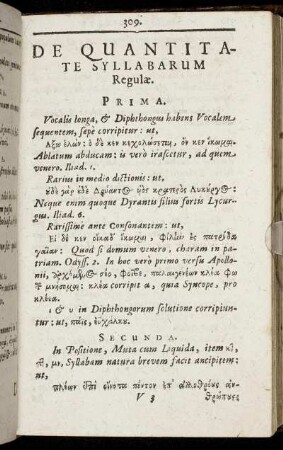 309.
DE QUANTITA-
TE SYLLABARUM
Regulæ.
PRIMA.
Vocalis longa, & Diphthongus habens Vocalem
sequentem, sæpè corripitur: ut,
Ἄξω ἑλών: ὁ δέ κεν κεχολώσεται, ὅν κεν ἵκωμαι.
Ablatum abducam: is verò irascetur, ad quem-
venero. Iliad. 1.
Rarius in medio dictionis: ut,
οὐδὲ γὰρ οὐδὲ Δρύαντος υἱὸς κρατερὸς Λυκόργος:
Neque enim quoque Dryantis filius fortis Lycur-
gus. Iliad. 6.
Rarissimè ante Consonantem: ut,
Εἰ δέ κεν οἴκαδ' ἵκωμαι, φίλην ἐς πατρίδα
γαῖαν: Quod si domum venero, charam in pa-
triam. Odyss. 2. In hoc verò primo versu Apollo-
nii, ἀρχόμενος σέο, Φοῖβε, παλαιγενέων κλέα φω-
τῶν μνήσομαι: κλέα corripit α, quia Syncope, pro
κλέεα.
ι & υ in Diphthongorum solutione corripiun-
tur: ut, πάϊς, ἐΰχαλκος.
SECUNDA.
In Positione, Muta cum Liquida, item
μν, Syllabam natura brevem facit ancipitem:
ut,
πλέων ἐπὶ οἴνοπα πόντον ἐπ' ἀλλοθρόους ἀν-
V 3 θρώπους